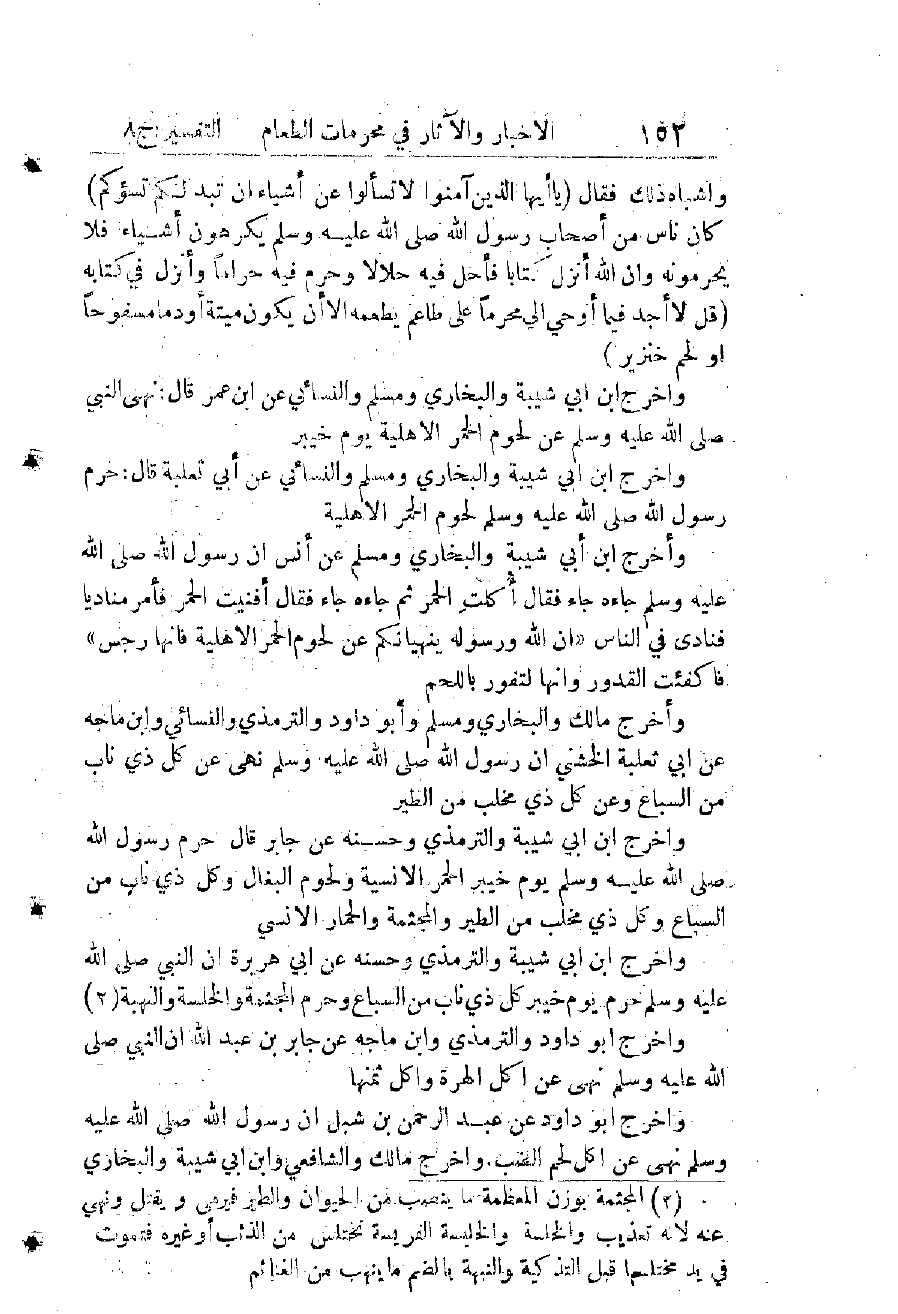 ١٥٢ الاخبار والآثار في محرمات الطعام التفسير:ج٨
واشباه ذلك فقال (ياأيها الذين آمنوا لاتسألوا عن أشياء ان تبد لكم تسؤكم)
كان ناس من أصحاب رسول الله صلى الله عليه وسلم يكرهون أشياء فلا
يحرمونه وان الله أنزل كتابا فأحل فيه حلالا وحرم فيه حراماً وأنزل في كتابه
(قل لاأجد فيما أوحي الي محرماً على طاعم يطعمه الاأن يكون ميتة أودما مسفوحاً
او لحم خنزير)
واخرج ابن ابي شيبة والبخاري ومسلم والنسائي عن ابن عمر قال: نهى النبي
صلى الله عليه وسلم عن لحوم الحمر الاهلية يوم خيبر
واخرج ابن ابي شيبة والبخاري ومسلم والنسائي عن أبي ثعلبة قال: حرم
رسول الله صلى الله عليه وسلم لحوم الحمر الاهلية
وأخرج ابن أبي شيبة والبخاري ومسلم عن أنس ان رسول الله صلى الله
عليه وسلم جاءه جاء فقال أُكلت الحمر ثم جاءه جاء فقال أفنيت الحمر فأمر مناديا
فنادى في الناس «ان الله ورسوله ينهيانكم عن لحوم الحمر الاهلية فانها رجس»
فاكفئت القدور وانها لتفور باللحم
وأخرج مالك والبخاري ومسلم وأبو داود والترمذي والنسائي وابن ماجه
عن ابي ثعلبة الخشني ان رسول الله صلى الله عليه وسلم نهى عن كل ذي ناب
من السباع وعن كل ذي مخلب من الطير
واخرج ابن ابي شيبة والترمذي وحسنه عن جابر قال حرم رسول الله
صلى الله عليه وسلم يوم خيبر الحمر الانسية ولحوم البغال وكل ذي ناب من
السباع وكل ذي مخلب من الطير والمجثمة والحمار الانسي
واخرج ابن ابي شيبة والترمذي وحسنه عن ابي هريرة ان النبي صلى الله
عليه وسلم حرم يوم خيبر كل ذي ناب من السباع وحرم المجثمة والخلسة والنهبة (٢)
واخرج ابو داود والترمذي وابن ماجه عن جابر بن عبد الله ان النبي صلى
الله عليه وسلم نهى عن اكل الهرة واكل ثمنها
واخرج ابو داود عن عبد الرحمن بن شبل ان رسول الله صلى الله عليه
وسلم نهى عن اكل لحم الضب. واخرج مالك والشافعي وابن ابي شيبة والبخاري
(٢) المجثمة بوزن المعظمة ما ينصب من الحيوان والطير فيرمى ويقتل ونهي
عنه لانه تعذيب والخلسة والخليسة الفريسة تختلس من الذئب أو غيره فتموت
في يد مختلسها قبل التذكية والنهبة بالضم ما ينهب من الغنائم